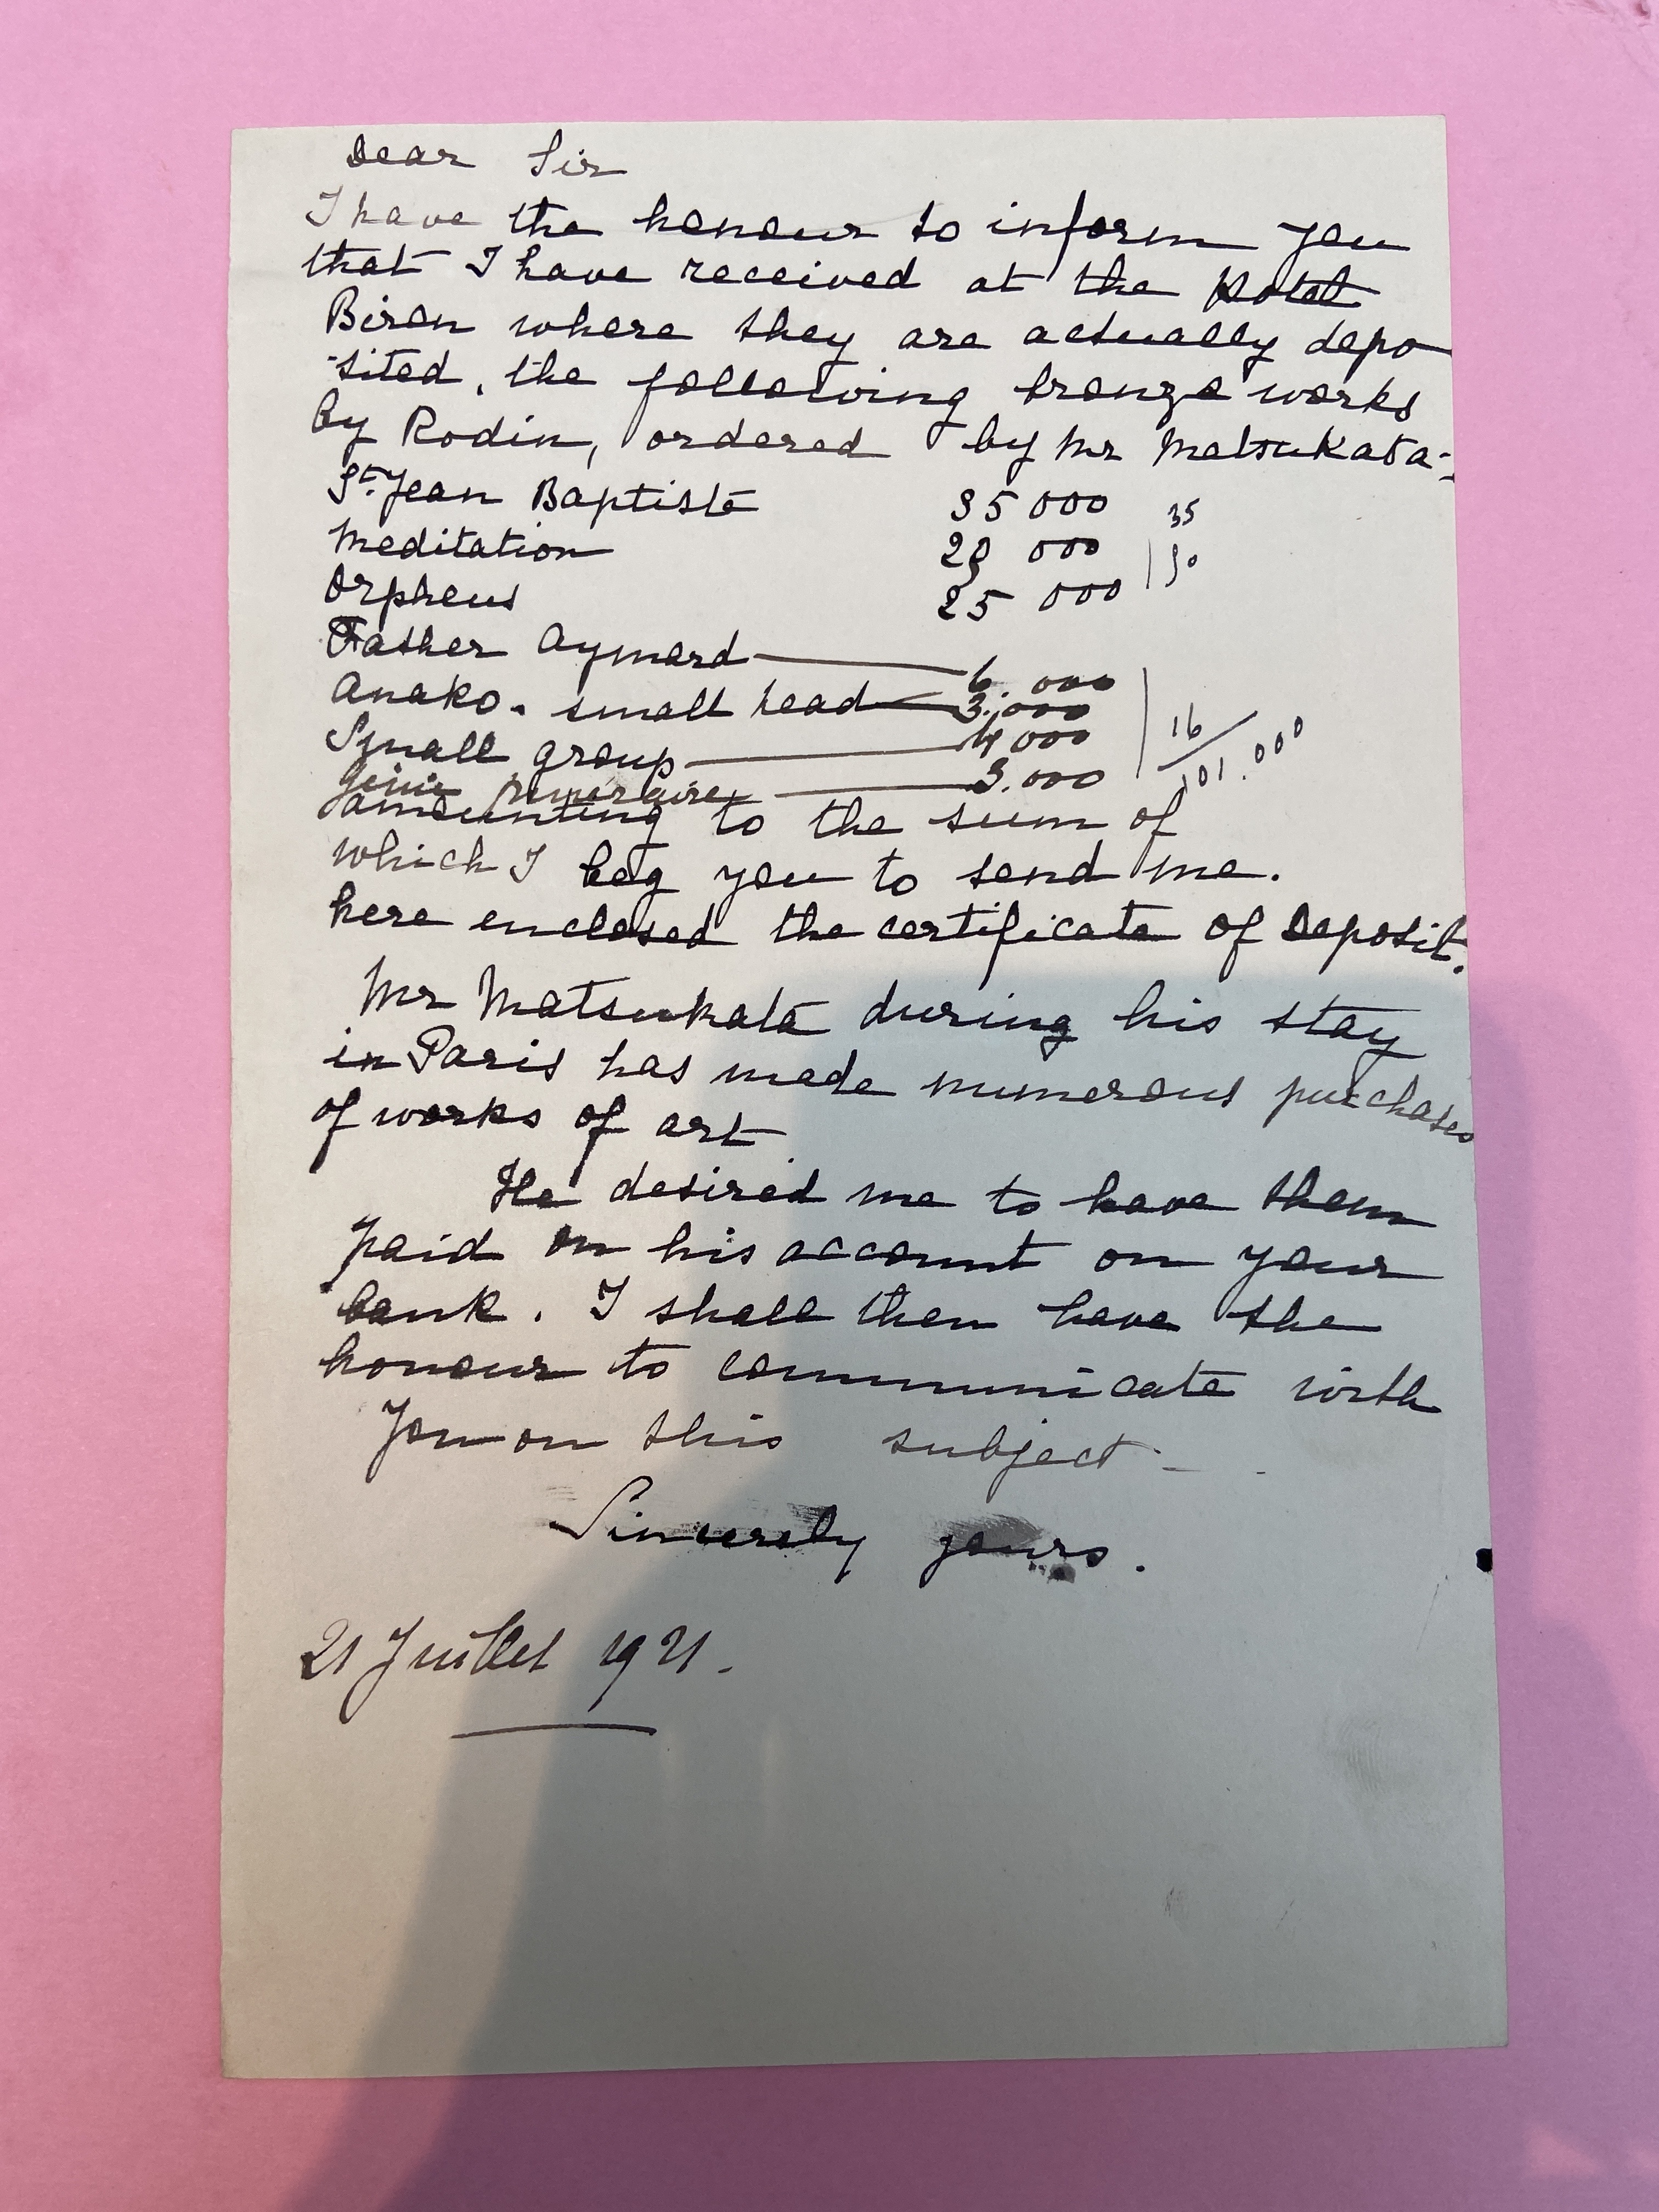 Dear Sir
I have the honour to inform you
that I have received at the Hotel
Biron where they are actually depo
-sited, the following bronze works
by Rodin, ordered by Mr Matsukata:
St. Jean Baptiste 35 000 35
Meditation 000
Orpheus 25 000 50
Father Aymard — 6.000
Anako. small head — 3.000
Small group — 4 000 16
génie funéraire — 3.000 101.000
amounting to the sum of
which I beg you to send me.
here enclosed the certificate of Deposit.
Mr Matsukata during his stay
in Paris has made numerous purchases
of works of art
He desired me to have them
paid on his account on your
bank. I shall then have the
honour to communicate with
you on this subject -
Sincerely yours.
21 Juillet 1921.